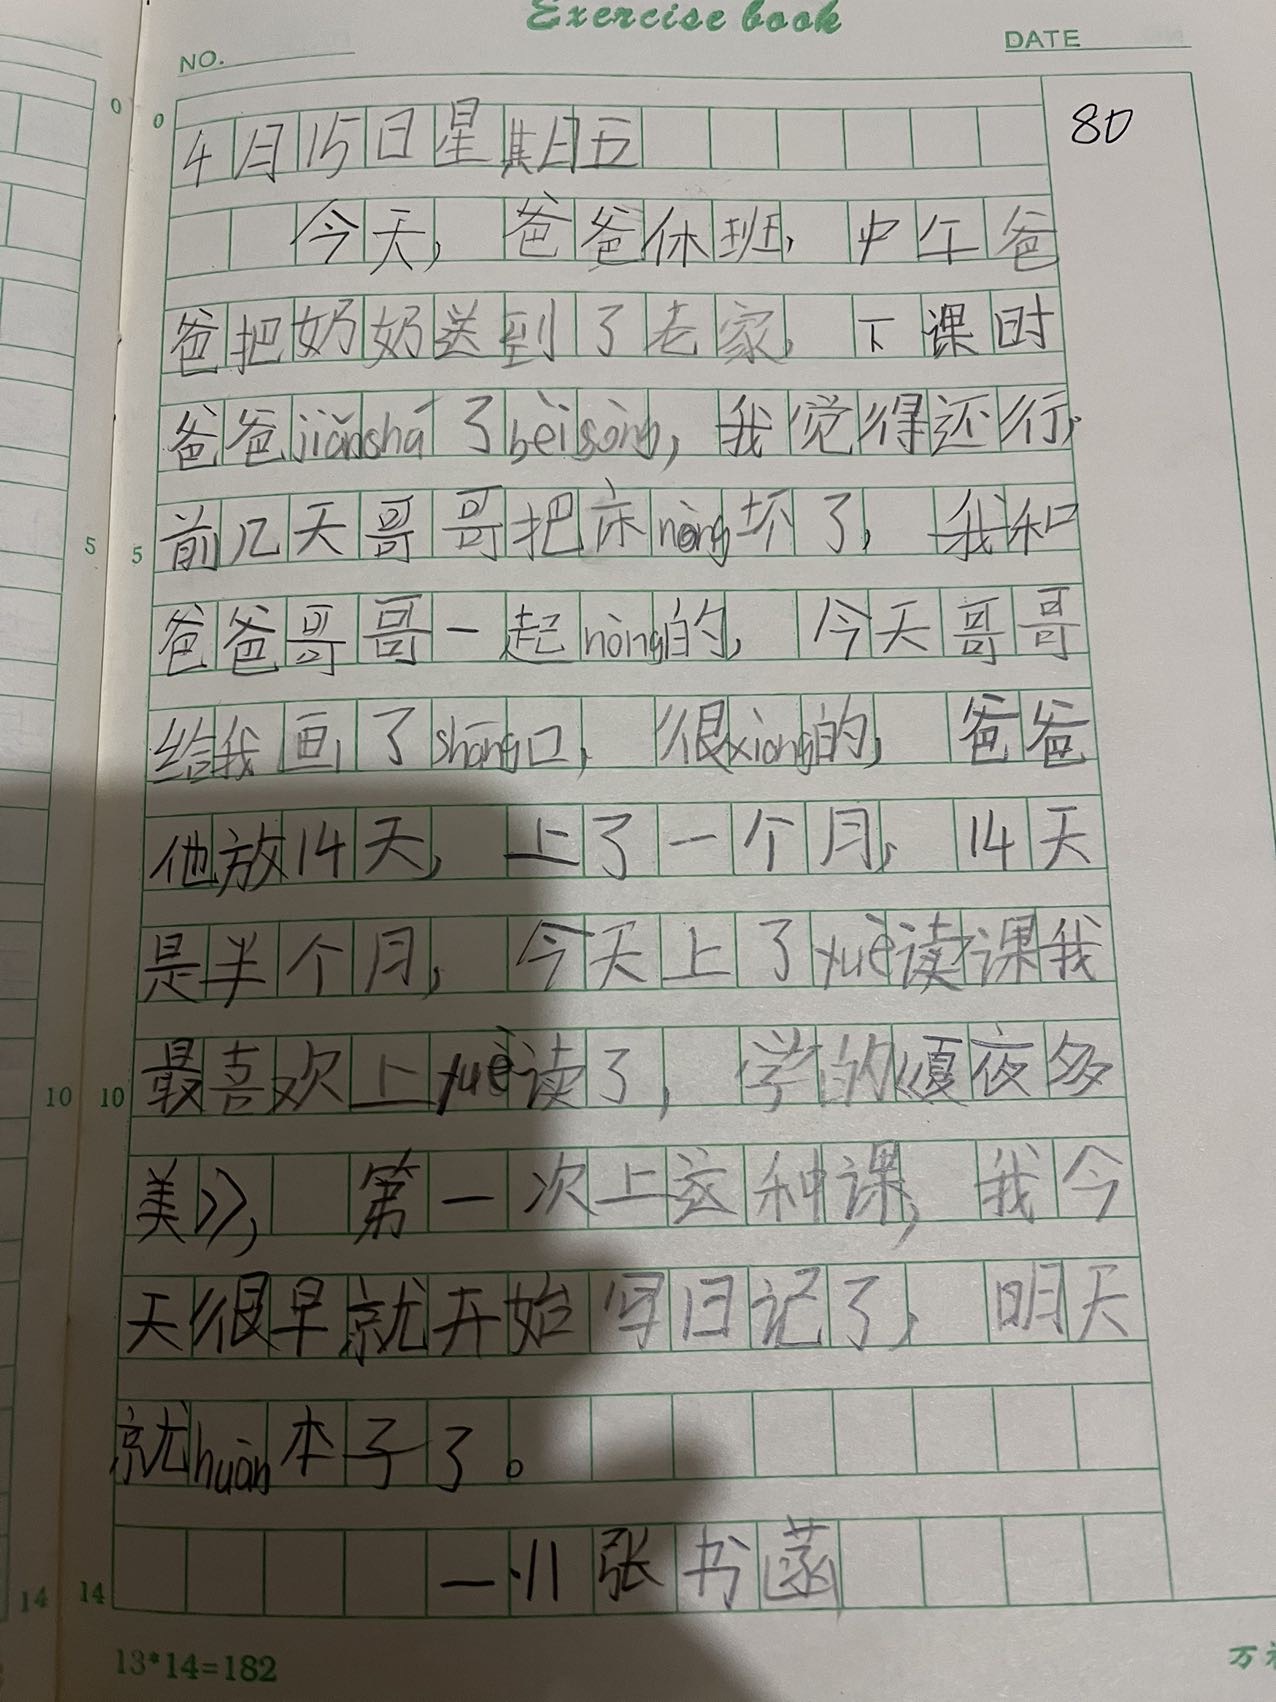 Exercise book
NO.
DATE
80
4月15日星期五
今天，爸爸休班，中午爸
爸把奶奶送到了老家，下课时
爸爸jiǎnchá了bèisòng，我觉得还行，
前几天哥哥把床nòng坏了，我和
爸爸哥哥一起nòng的，今天哥哥
给我画了shāng口，很xiàng的，爸爸
他放14天，上了一个月，14天
是半个月，今天上了yuè读课我
最喜欢上yuè读了，学的《夏夜多
美》，第一次上这种课，我今
天很早就开始写日记了，明天
就huàn本子了。
张书菡
0
0
5
5
10
10
14
14
13*14=182